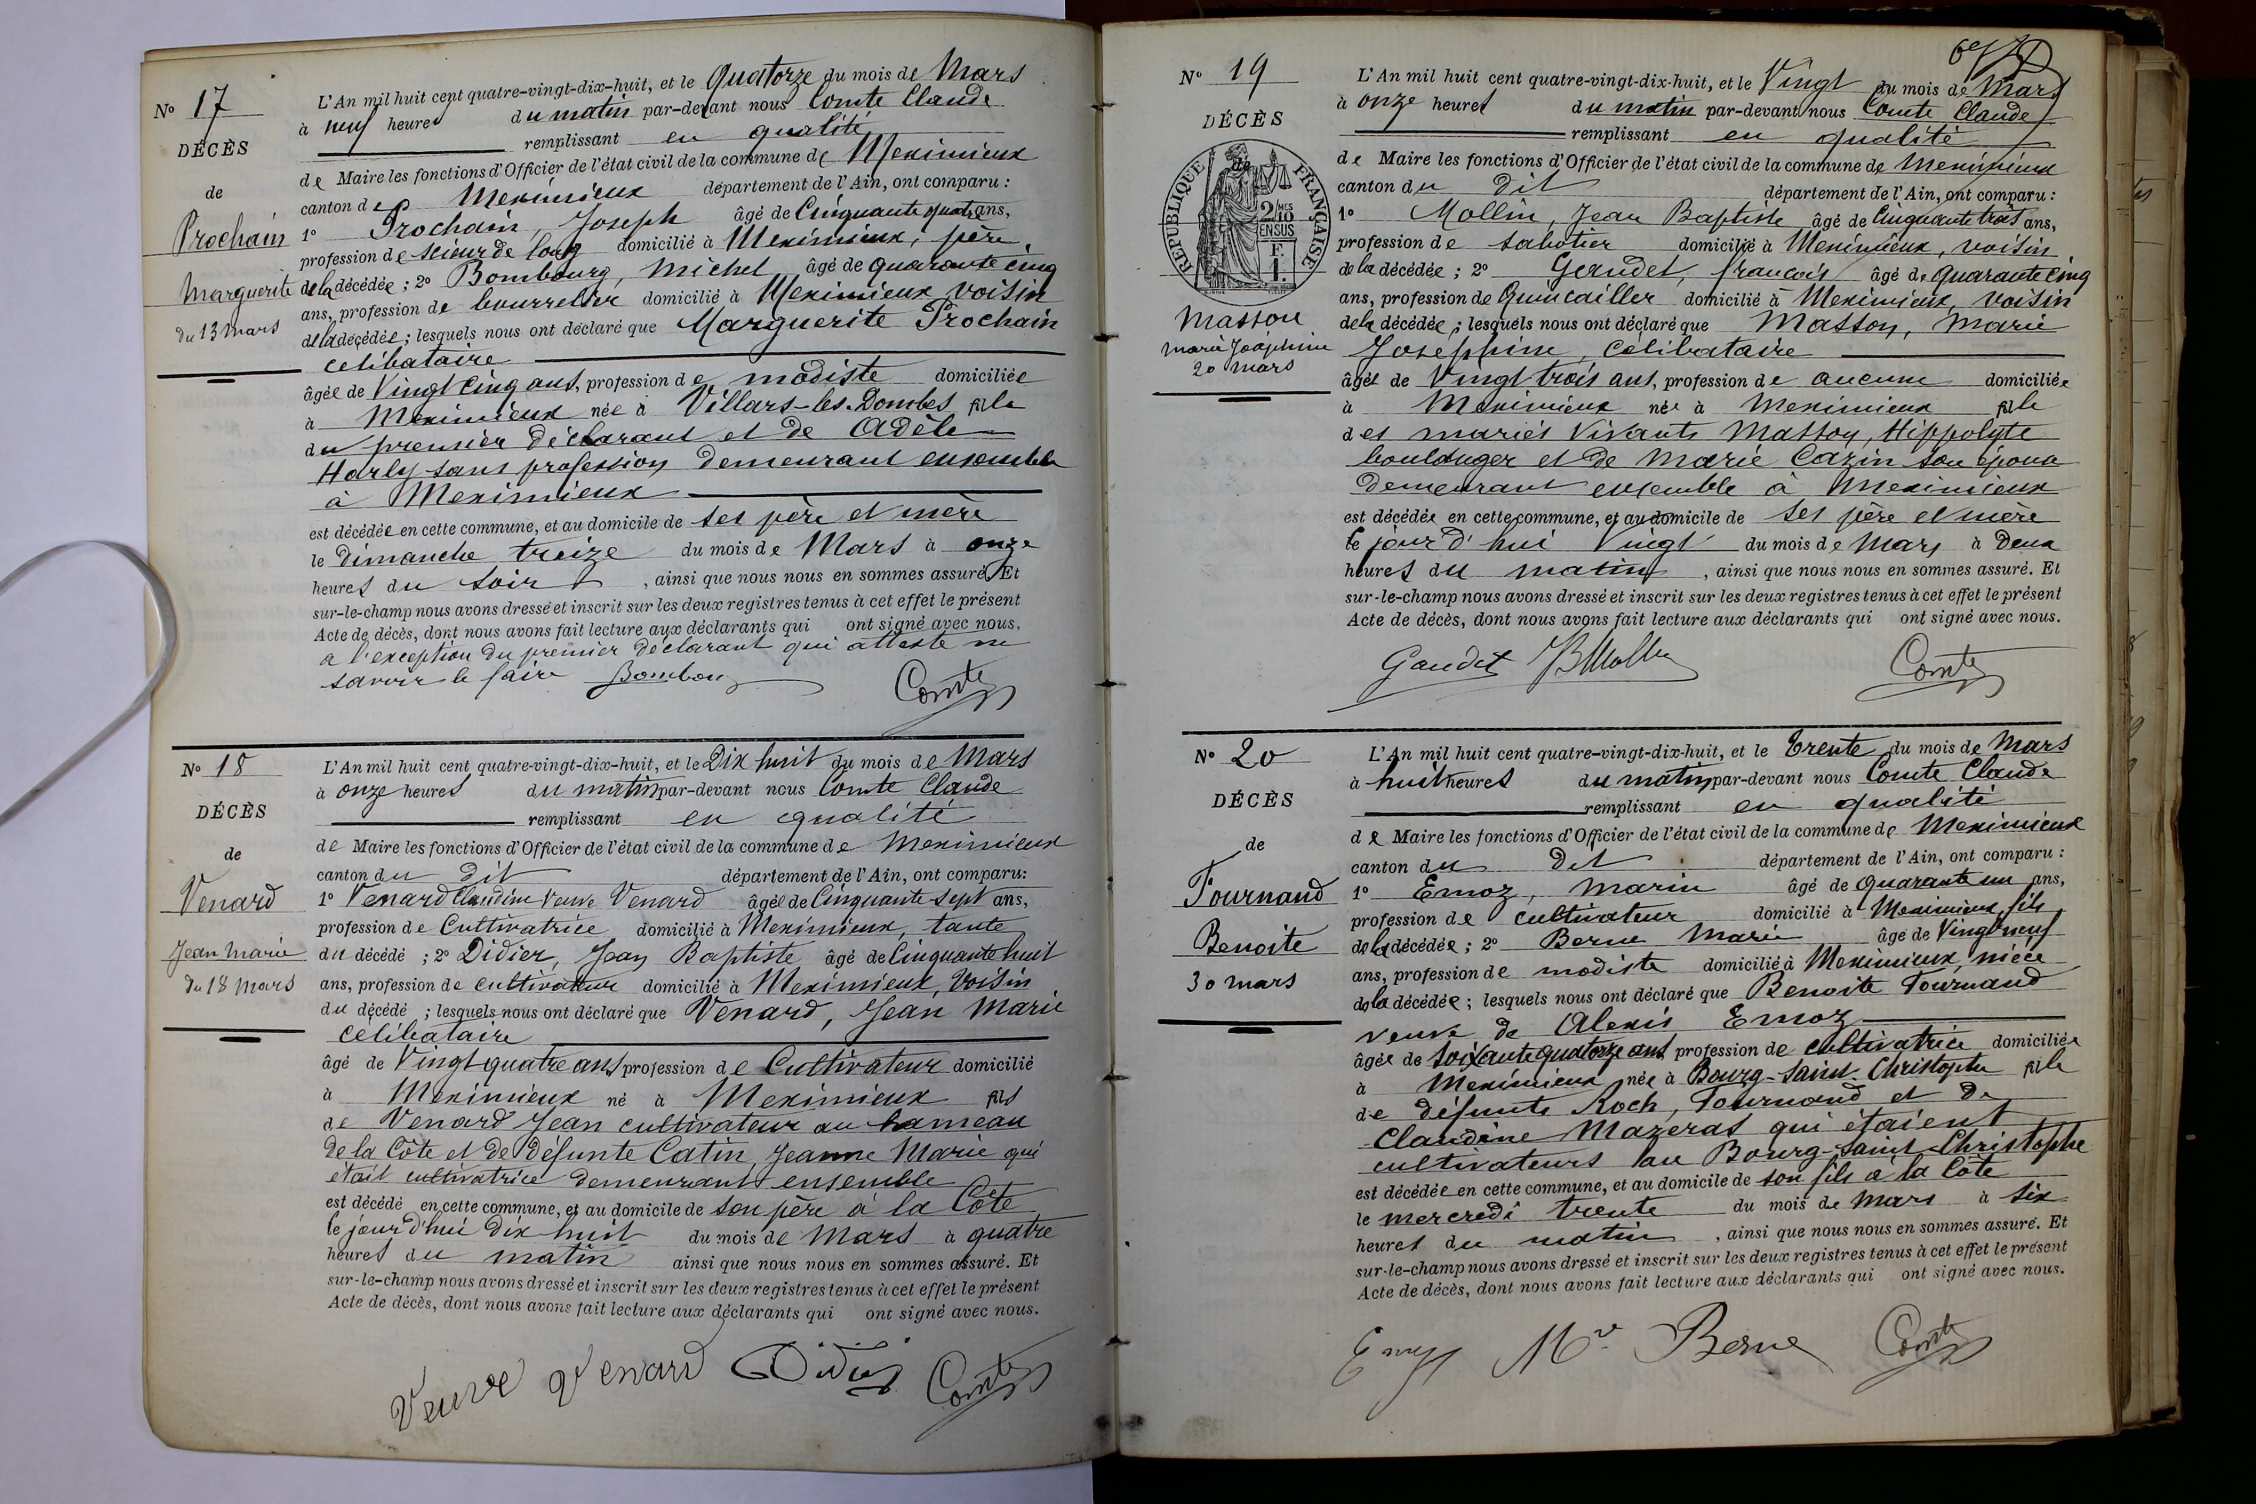 N° 17
DÉCÈS
de
Prochain
Marguerite
du 13 mars
L'An mil huit cent quatre-vingt-dix-huit, et le Quatorze du mois de Mars
à neuf heures du matin par-devant nous Comte Claude
remplissant en qualité
de Maire les fonctions d'Officier de l'état civil de la commune de Meximieux
canton de Meximieux département de l'Ain, ont comparu :
1° Prochain, Joseph âgé de Cinquante quatre ans,
profession de scieur de long domicilié à Meximieux, père
de la décédée ; 2° Bombourg, Michel âgé de quarante cinq
ans, profession de bourrelier domicilié à Meximieux voisin
de la décédée ; lesquels nous ont déclaré que Marguerite Prochain
célibataire
âgée de Vingt cinq ans, profession de modiste domiciliée
à Meximieux née à Villars-les-Dombes fille
du premier déclarant et de Adèle
Harly sans profession demeurant ensemble
à Meximieux
est décédée en cette commune, et au domicile de ses père et mère
le dimanche treize du mois de Mars à onze
heures du soir, ainsi que nous nous en sommes assuré. Et
sur-le-champ nous avons dressé et inscrit sur les deux registres tenus à cet effet le présent
Acte de décès, dont nous avons fait lecture aux déclarants qui ont signé avec nous.
a l'exception du premier déclarant qui atteste ne
savoir le faire Bombourg Comte
N° 18
DÉCÈS
de
Venard
Jean Marie
du 18 mars
L'An mil huit cent quatre-vingt-dix-huit, et le Dix huit du mois de Mars
à onze heures du matin par-devant nous Comte Claude
remplissant en qualité
de Maire les fonctions d'Officier de l'état civil de la commune de Meximieux
canton du dit département de l'Ain, ont comparu :
1° Venard Claudine veuve Venard âgée de Cinquante sept ans,
profession de Cultivatrice domicilié à Meximieux, tante
du décédé ; 2° Didier, Jean Baptiste âgé de Cinquante huit
ans, profession de cultivateur domicilié à Meximieux, voisin
du décédé ; lesquels nous ont déclaré que Venard, Jean Marie
célibataire
âgé de Vingt quatre ans profession de Cultivateur domicilié
à Meximieux né à Meximieux fils
de Venard Jean cultivateur au hameau
de la Côte et de défunte Catin, Jeanne Marie qui
était cultivatrice demeurant ensemble
est décédé en cette commune, et au domicile de son père à la Côte
le jour d'hui dix huit du mois de Mars à quatre
heures du matin ainsi que nous nous en sommes assuré. Et
sur-le-champ nous avons dressé et inscrit sur les deux registres tenus à cet effet le présent
Acte de décès, dont nous avons fait lecture aux déclarants qui ont signé avec nous.
Veuve Venard Didier Comte
N° 19
DÉCÈS
de
RÉPUBLIQUE FRANÇAISE
2/10 MES
EN SUS
1 F.
Masson
marie Joséphine
20 mars
L'An mil huit cent quatre-vingt-dix-huit, et le Vingt du mois de Mars
à onze heures du matin par-devant nous Comte Claude
remplissant en qualité
de Maire les fonctions d'Officier de l'état civil de la commune de Meximieux
canton du dit département de l'Ain, ont comparu :
1° Mollin, Jean Baptiste âgé de Cinquante trois ans,
profession de sabotier domicilié à Meximieux, voisin
de la décédée ; 2° Gaudet, françois âgé de quarante cinq
ans, profession de Quincailler domicilié à Meximieux, voisin
de la décédée ; lesquels nous ont déclaré que Masson, Marie
Joséphine, célibataire
âgée de Vingt trois ans, profession de aucune domiciliée
à Meximieux née à Meximieux fille
des mariés vivants Masson, Hippolyte
boulanger et de Marie Cazin son épouse
demeurant ensemble à Meximieux
est décédée en cette commune, et au domicile de ses père et mère
le jour d'hui Vingt du mois de Mars à deux
heures du matin, ainsi que nous nous en sommes assuré. Et
sur-le-champ nous avons dressé et inscrit sur les deux registres tenus à cet effet le présent
Acte de décès, dont nous avons fait lecture aux déclarants qui ont signé avec nous.
Gaudet JB Mollin Comte
N° 20
DÉCÈS
de
Tournand
Benoite
30 mars
L'An mil huit cent quatre-vingt-dix-huit, et le trente du mois de Mars
à huit heures du matin par-devant nous Comte Claude
remplissant en qualité
de Maire les fonctions d'Officier de l'état civil de la commune de Meximieux
canton du dit département de l'Ain, ont comparu :
1° Emoz, Marin âgé de quarante un ans,
profession de cultivateur domicilié à Meximieux, fils
de la décédée ; 2° Berne Marie âgé de Vingt neuf
ans, profession de modiste domicilié à Meximieux, nièce
de la décédée ; lesquels nous ont déclaré que Benoite Tournand
veuve de Alexis Emoz
âgée de soixante quatorze ans profession de cultivatrice domiciliée
à Meximieux née à Bourg-Saint-Christophe fille
de défunts Roch, Tournand et de
Claudine Mazeras qui étaient
cultivateurs au Bourg-Saint-Christophe
est décédée en cette commune, et au domicile de son fils à la Côte
le mercredi trente du mois de Mars à six
heures du matin, ainsi que nous nous en sommes assuré. Et
sur-le-champ nous avons dressé et inscrit sur les deux registres tenus à cet effet le présent
Acte de décès, dont nous avons fait lecture aux déclarants qui ont signé avec nous.
Emoz Mie Berne Comte